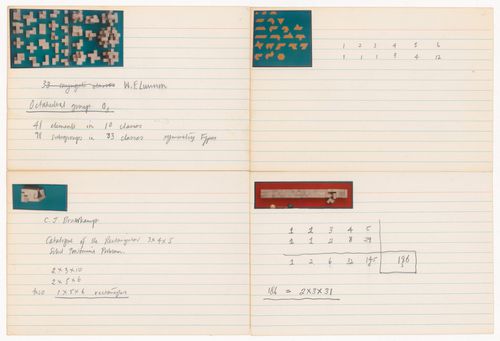 33 conjugate classes W.F. Lunnon
Octahedral group Oh
48 elements in 10 classes
98 subgroups in 33 classes symmetry Types
1 2 3 4 5 6
1 1 1 3 4 12
C. J. Bouwkamp
Catalogue of the Rectangular 3x4x5
Solid Pentomino Problem
2 x 3 x 10
2 x 5 x 6
also 1 x 5 x 6 rectangles
1 2 3 4 5
1 1 2 8 29
1 2 6 32 145 186
186 = 2x3x31